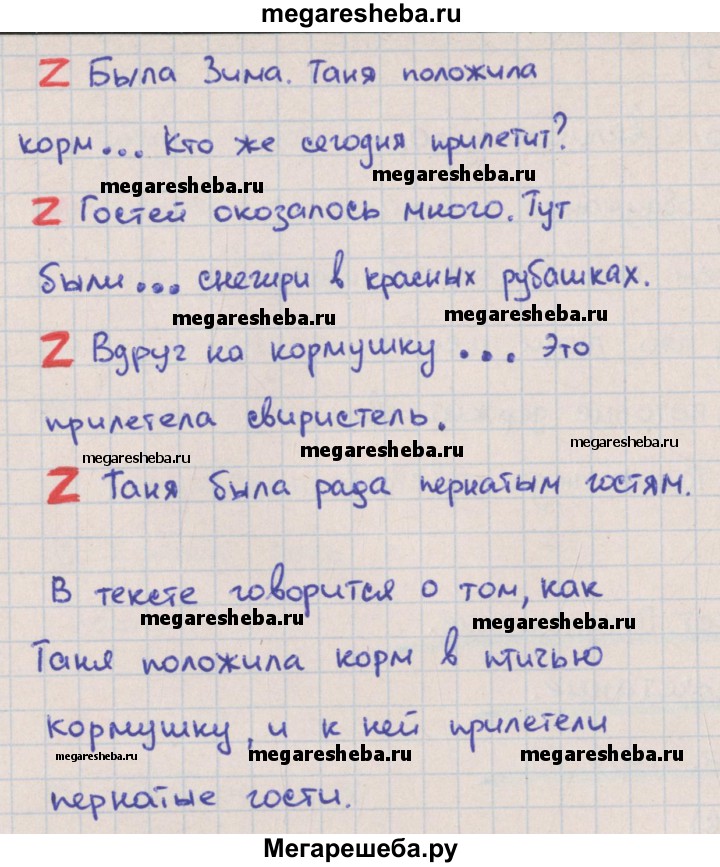 megaresheba.ru
Z Была Зима. Таня положила
корм... Кто же сегодня прилетит?
megaresheba.ru megaresheba.ru
Z Гостей окозалось много. Тут
были... снегири в красных рубашках.
megaresheba.ru megaresheba.ru
Z Вдруг на кормушку ... Это
прилетела свиристель.
megaresheba.ru megaresheba.ru megaresheba.ru
Z Таня была рада пернатым гостям.
В тексте говорится о том, как
megaresheba.ru megaresheba.ru
Таня положила корм в птичью
кормушку, и к ней прилетели
megaresheba.ru megaresheba.ru megaresheba.ru
пернатые гости.
Мегарешеба.ру